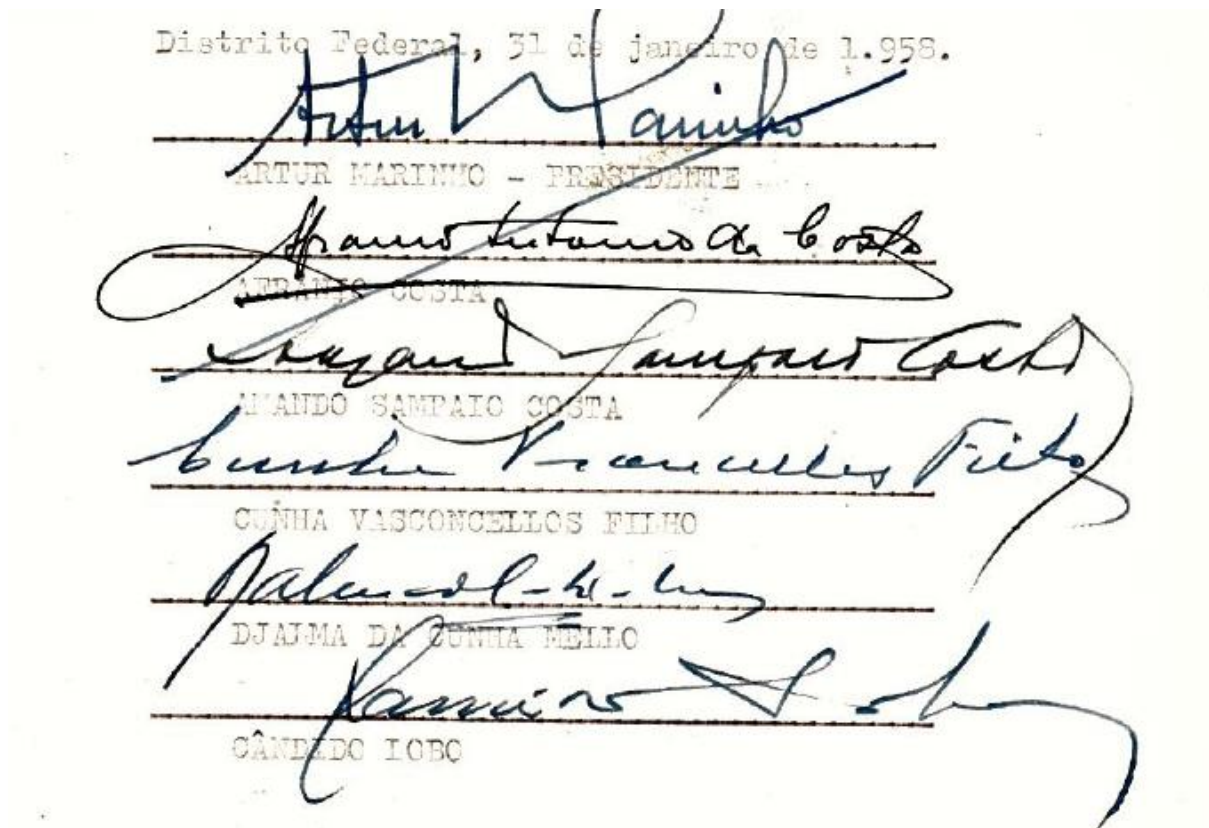 Distrito Federal, 31 de janeiro de 1.958.
Artur Marinho
ARTUR MARINHO - PRESIDENTE
Afranio Antonio da Costa
AFRANIO COSTA
Sampaio Costa
AMANDO SAMPAIO COSTA
Cunha Vasconcellos Filho
CUNHA VASCONCELLOS FILHO
DJALMA DA CUNHA MELLO
CÂNDIDO LOBO